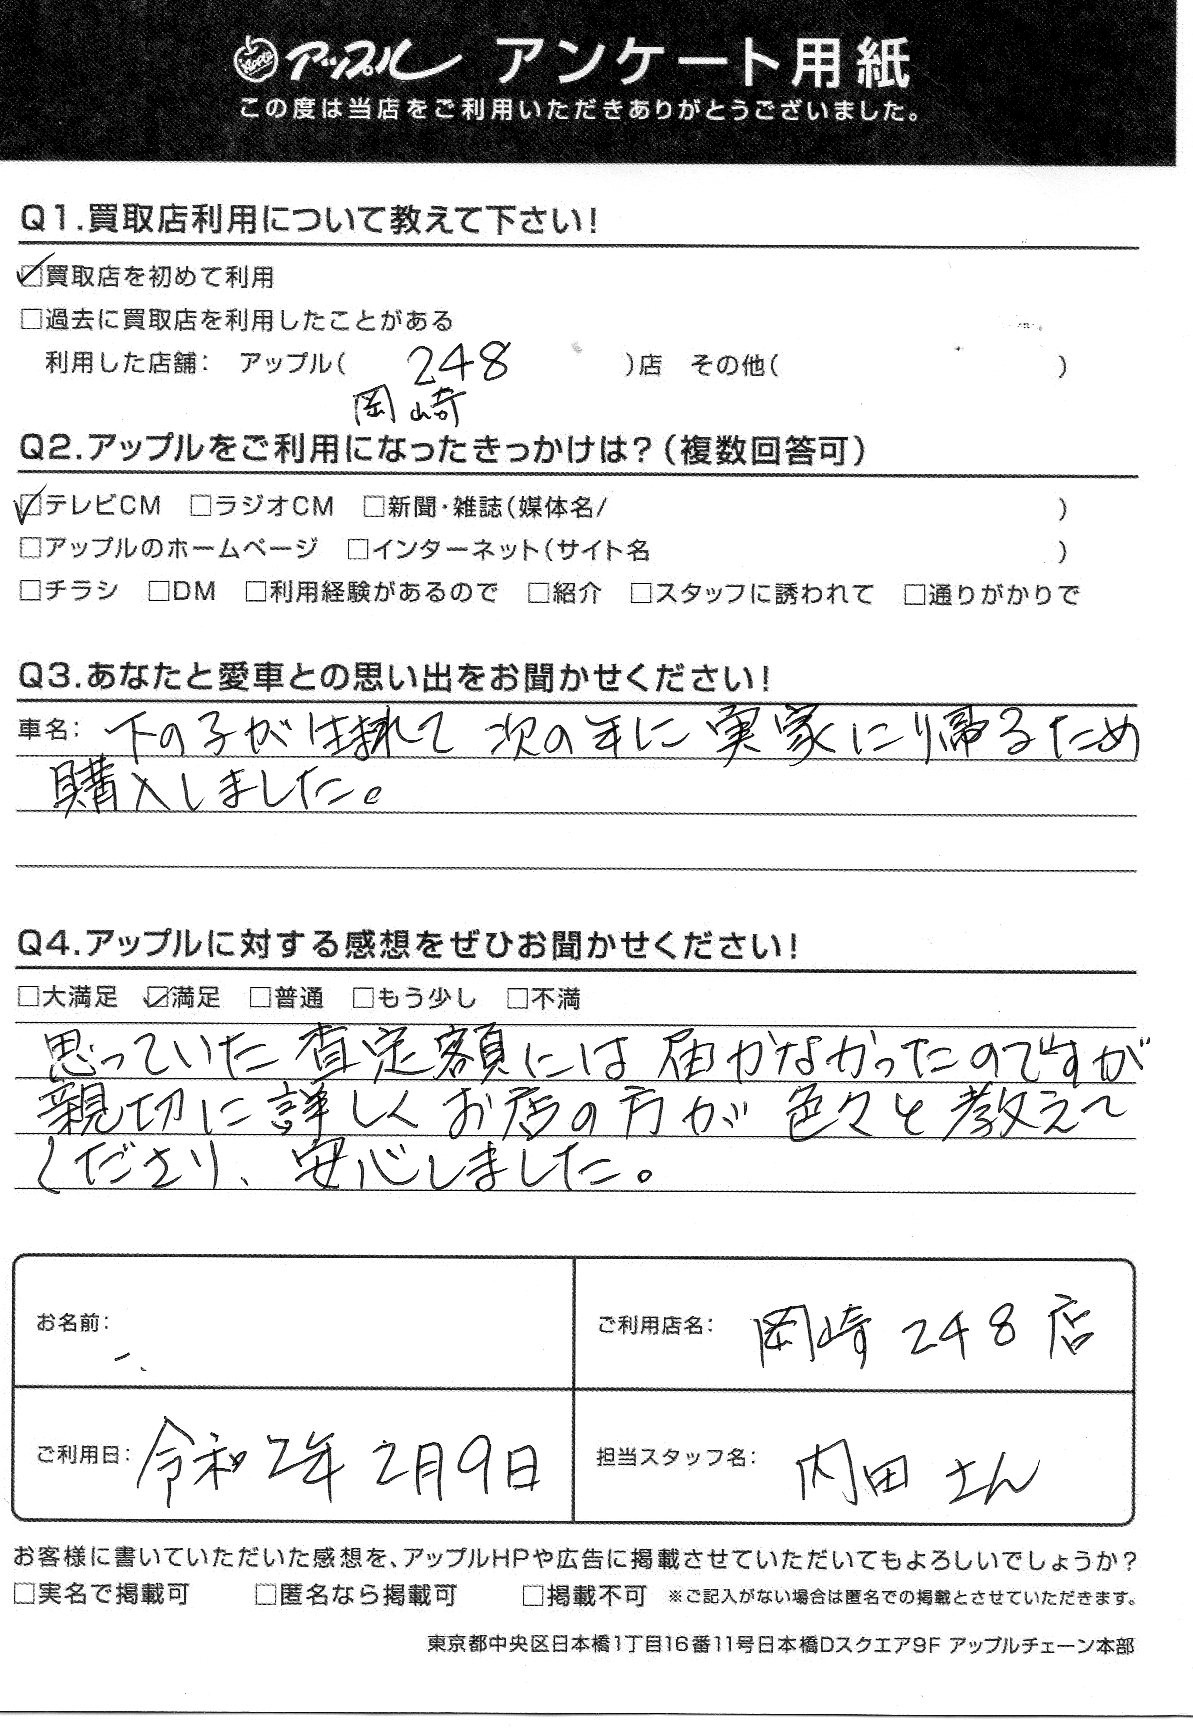 アップル アンケート用紙
この度は当店をご利用いただきありがとうございました。
Q1.買取店利用について教えて下さい!
☑買取店を初めて利用
□過去に買取店を利用したことがある
利用した店舗: アップル( 248 )店 その他( )
岡崎
Q2.アップルをご利用になったきっかけは?(複数回答可)
☑テレビCM □ラジオCM □新聞・雑誌(媒体名/ )
□アップルのホームページ □インターネット(サイト名 )
□チラシ □DM □利用経験があるので □紹介 □スタッフに誘われて □通りがかりで
Q3.あなたと愛車との思い出をお聞かせください!
車名: 下の子が生まれて 次の年に 実家に帰るため
購入しました。
Q4.アップルに対する感想をぜひお聞かせください!
□大満足 ☑満足 □普通 □もう少し □不満
思っていた 査定額には 届かなかったのですが
親切に 詳しく お店の方が 色々と 教えて
くださり、安心しました。
お名前:
ご利用店名: 岡崎 248 店
ご利用日: 令和2年 2月9日
担当スタッフ名: 内田 さん
お客様に書いていただいた感想を、アップルHPや広告に掲載させていただいてもよろしいでしょうか?
□実名で掲載可 □匿名なら掲載可 □掲載不可 ※ご記入がない場合は匿名での掲載とさせていただきます。
東京都中央区日本橋1丁目16番11号日本橋Dスクエア9F アップルチェーン本部